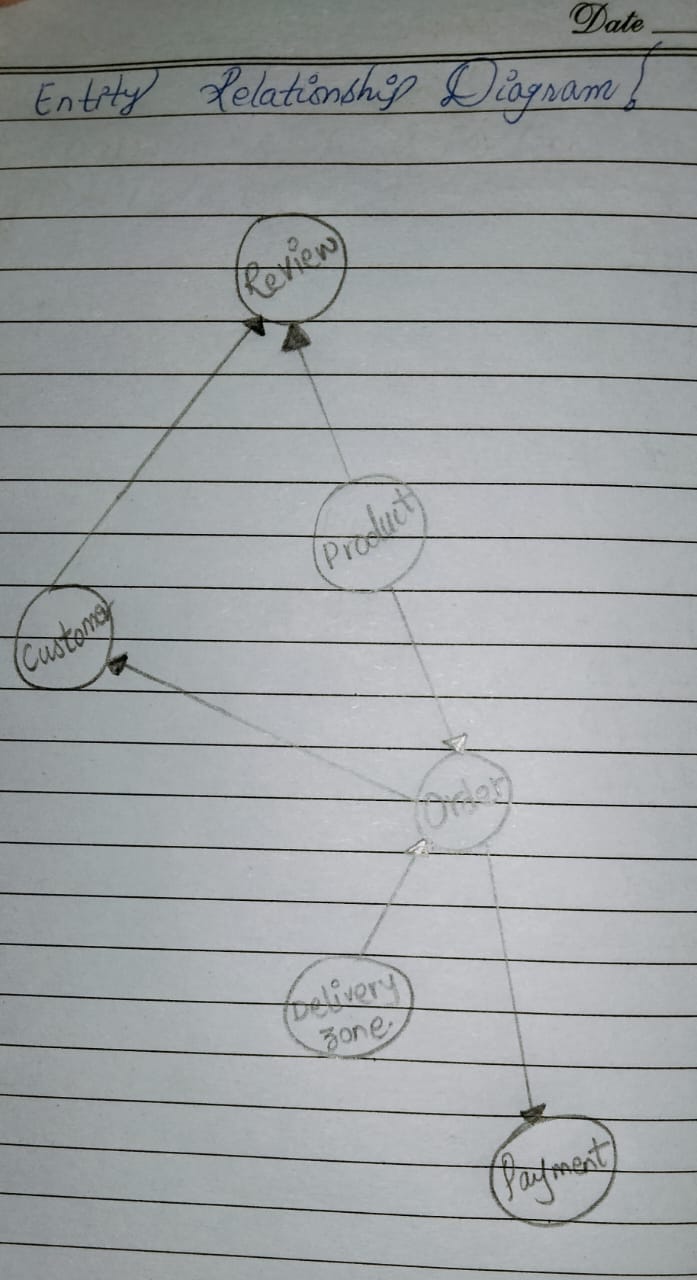 Date
Entity Relationship Diagram!
Review
Product
Customer
Order
Delivery
zone.
Payment